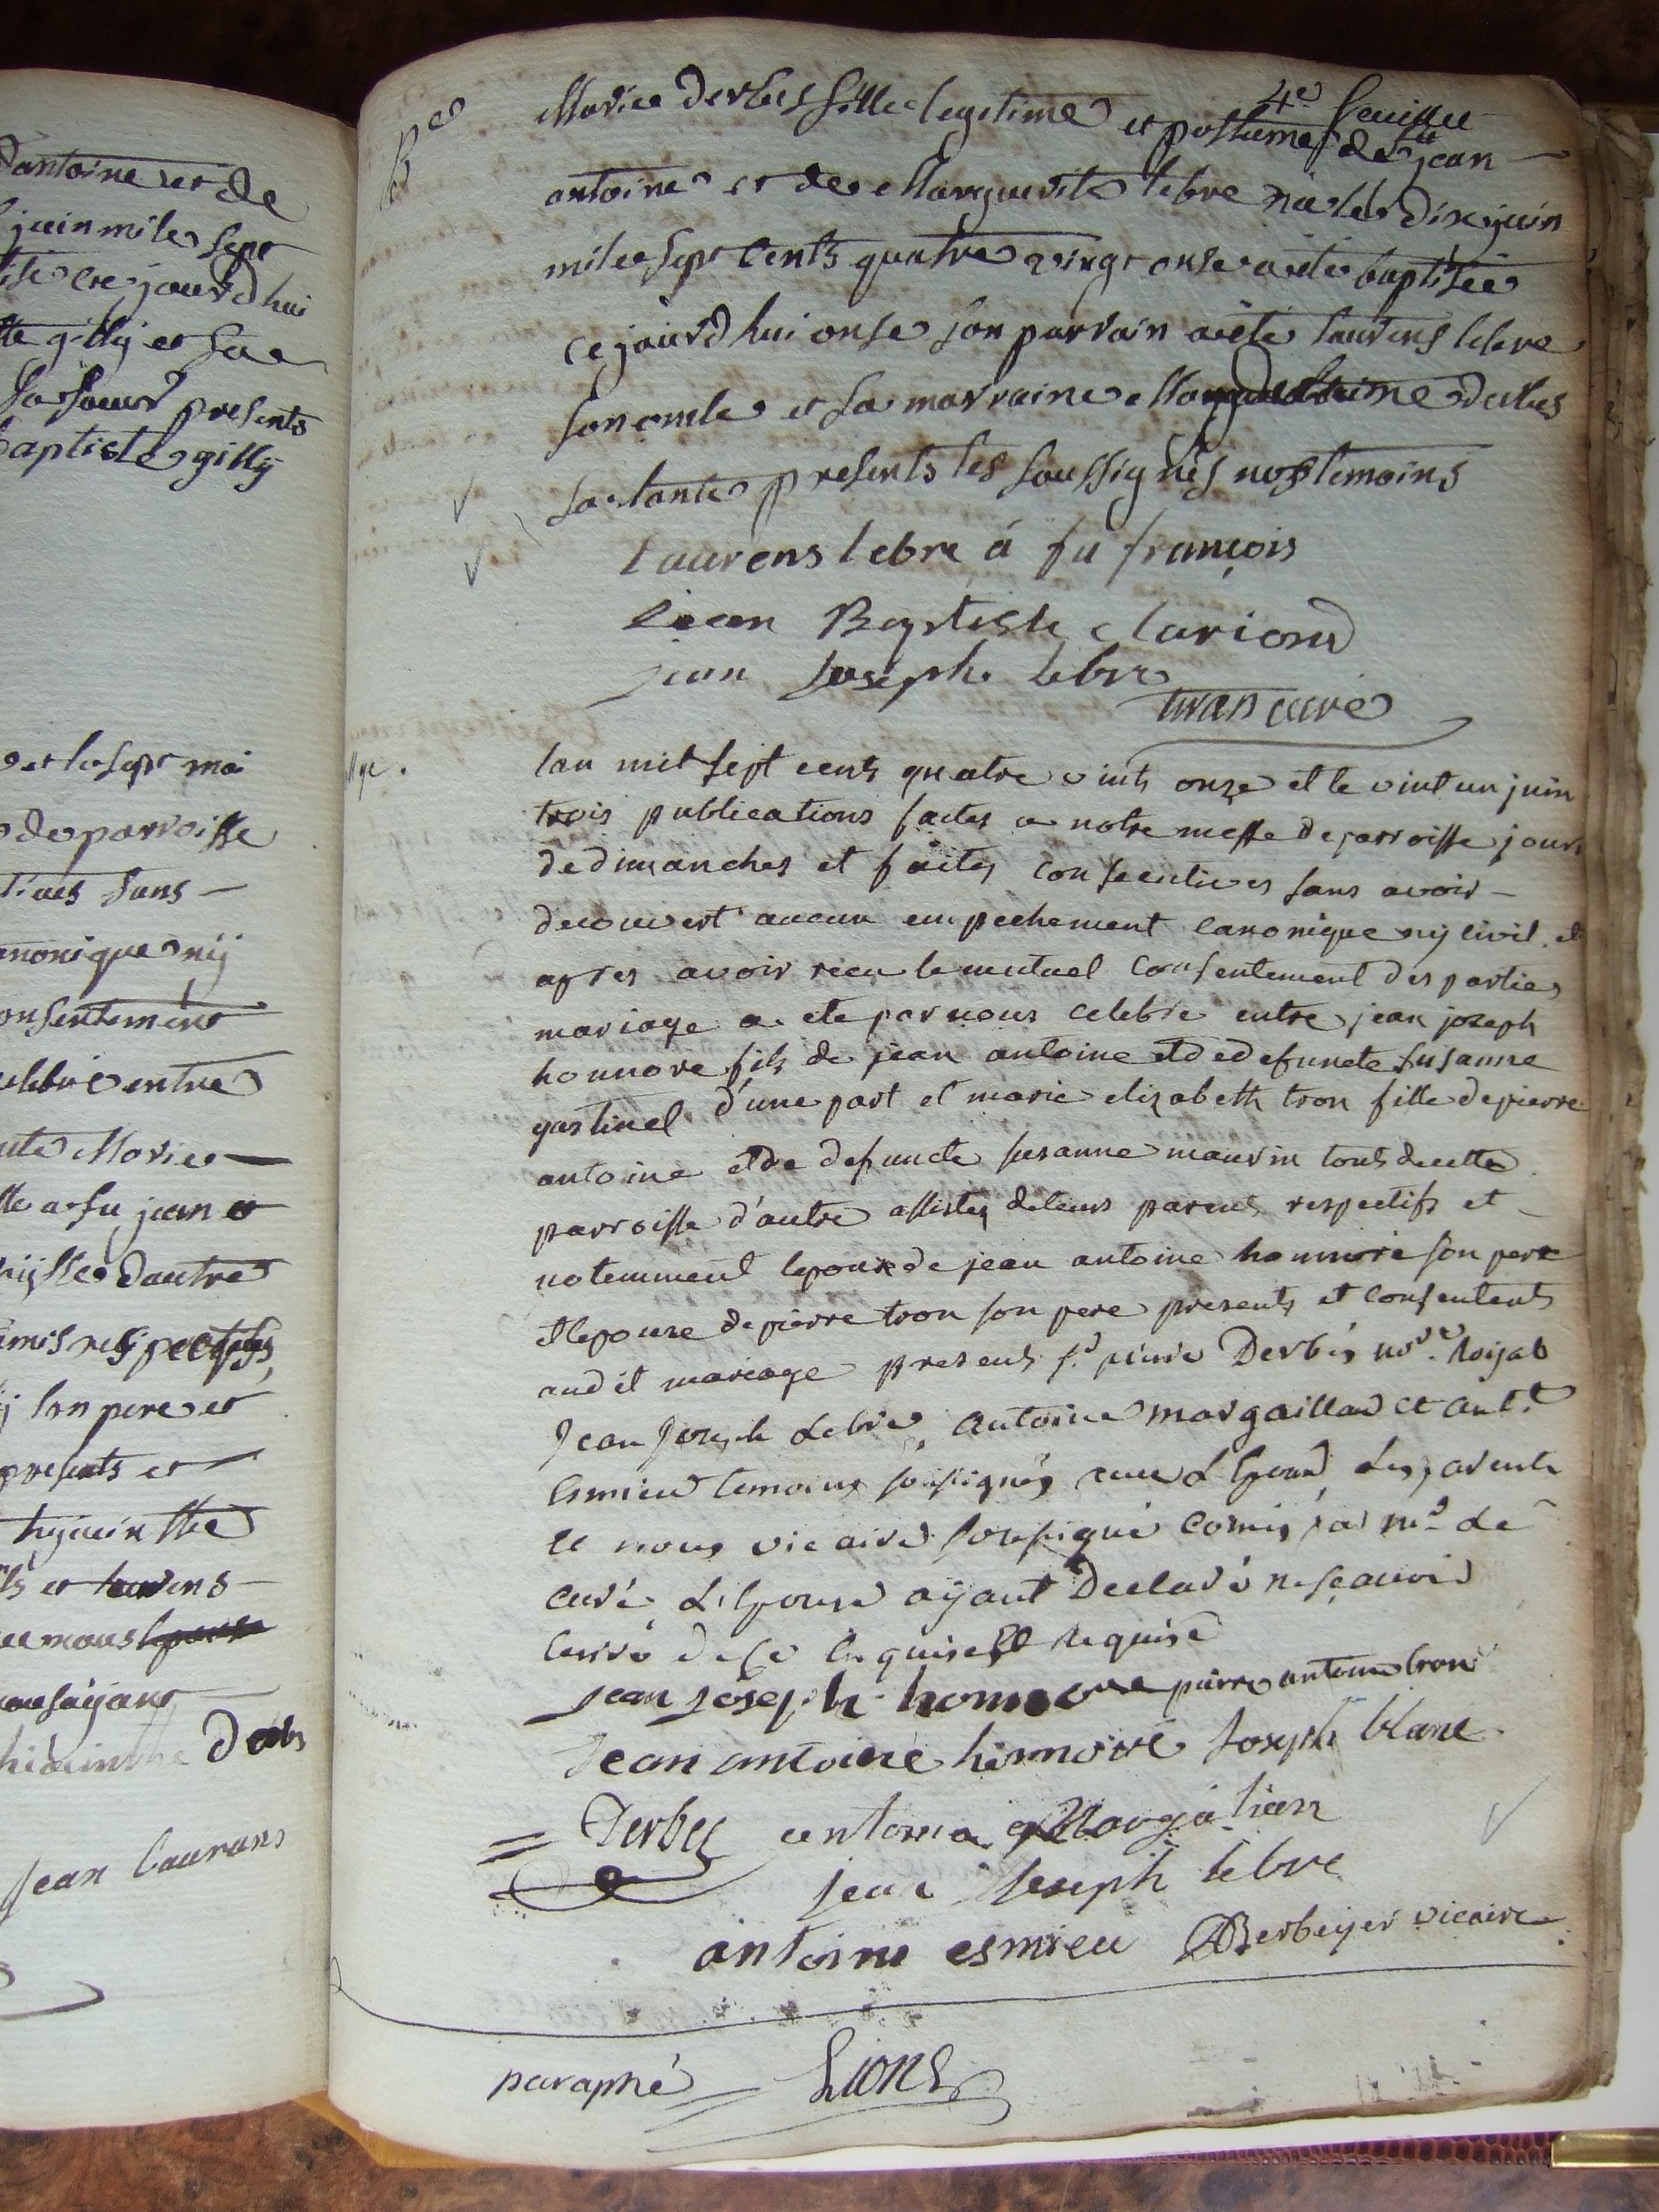 dantoine et de
juin mile sept
ce jourdhui
gilly et sa
sa soeur presents
baptiste gilly
et le sept mai
de parroisse
sans
canonique nij
consentement
celebré entre
Marie
a fu jean et
dautre
amis respectifs
son pere et
presents et
hyacinthe
et laurens
nous
ayant
jean laurans
4e feuillet
Bee
Marie derbes fille legitime et postume de fu jean
antoine et de Marguerite lebre née le dix juin
mile sept cents quatre vingt onse a été baptisée
ce jourd hui onse son parrain a été laurens lebre
son oncle et sa marraine Magdeleine derbes
sa tante presents les soussignés nos temoins
laurens lebre á fu françois
jean Baptiste clariond
jean joseph lebre
curé
Mge.
lan mil sept cents quatre vints onze et le vint un juin
trois publications faites a notre messe de parroisse jours
de dimanches et faites consecutives sans avoir
decouvert aucun empechement canonique nij civil et
apres avoir recu le mutuel consentement des parties
mariage a ete par nous celebré entre jean joseph
honnore fils de jean antoine et de defuncte susanne
gastinel d'une part et marie elizabeth tron fille de pierre
antoine et de defuncte susanne maurin touts de cette
parroisse d'autre assistes de leurs parents respectifs et
notemment lepoux de jean antoine honnoré son pere
et lepouse de pierre tron son pere presents et consentents
audit mariage presents sr pierre Derbés nore Roijal
Jean Joseph Lebre, antoine margaillan et antne
Esmieu temoins soussignés avec Lepoux, Les parents
et nous vicaire soussigné comis par mr Le
curé L'Epouse aÿant declaré ne sçavoir
Ecrire de ce Enquise et Requise
jean joseph honnore pierre antoine tron
Jean antoine honnoré Joseph blanc
Derbes antoine Margalian
jean Joseph lebre
antoine esmieu Berbeyer vicaire
paraphé Lions